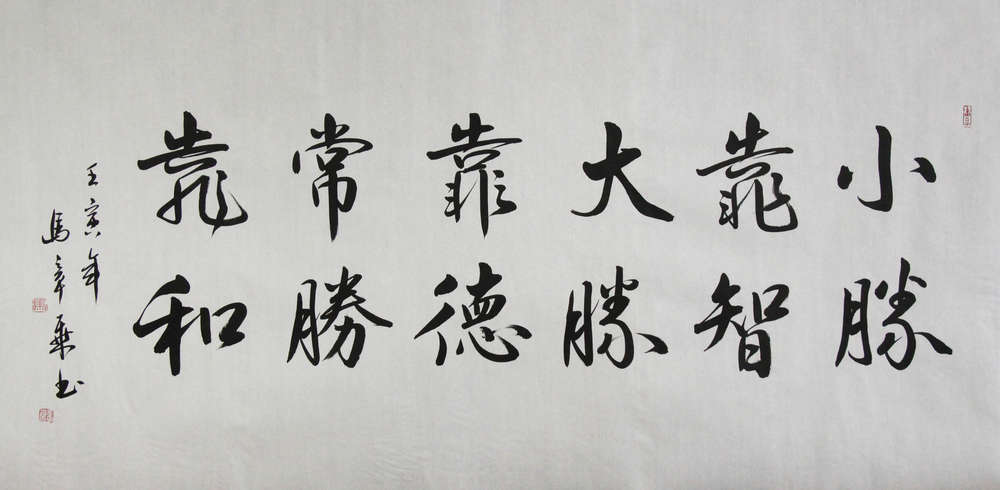 小勝
靠智
大勝
靠德
常勝
靠和
壬寅年
馬章乘书